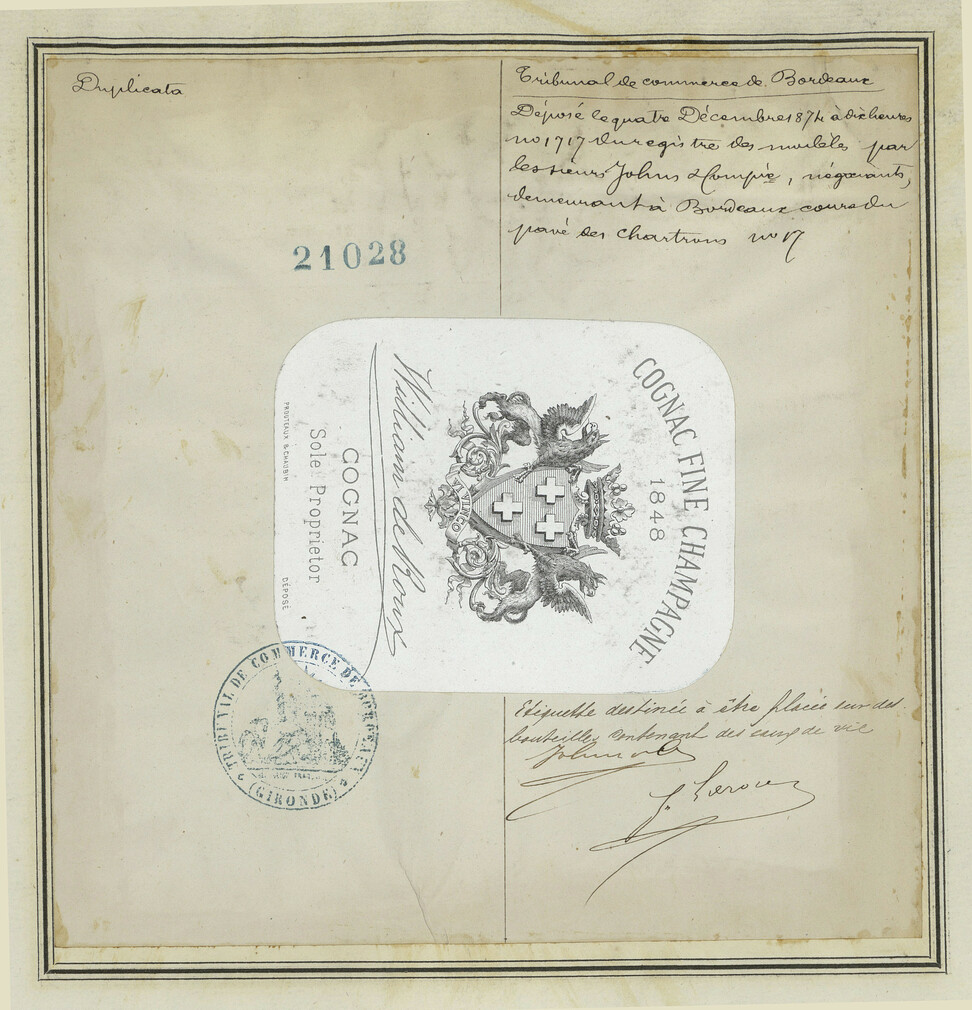 Duplicata
Tribunal de commerce de Bordeaux
Déposé le quatre Décembre 1874 à dix heures
no 1717 du registre des modèles par
les sieurs Johns & Compie, négociants,
demeurant à Bordeaux cours du
pavé des Chartrons no 17
21028
COGNAC FINE CHAMPAGNE
1848
William de Roux
COGNAC
Sole Proprietor
PROUTEAUX & CHAUBIN
DÉPOSÉ
TRIBUNAL DE COMMERCE DE BORDEAUX
(GIRONDE)
Etiquette destinée à être placée sur des
bouteilles contenant des eaux de vie